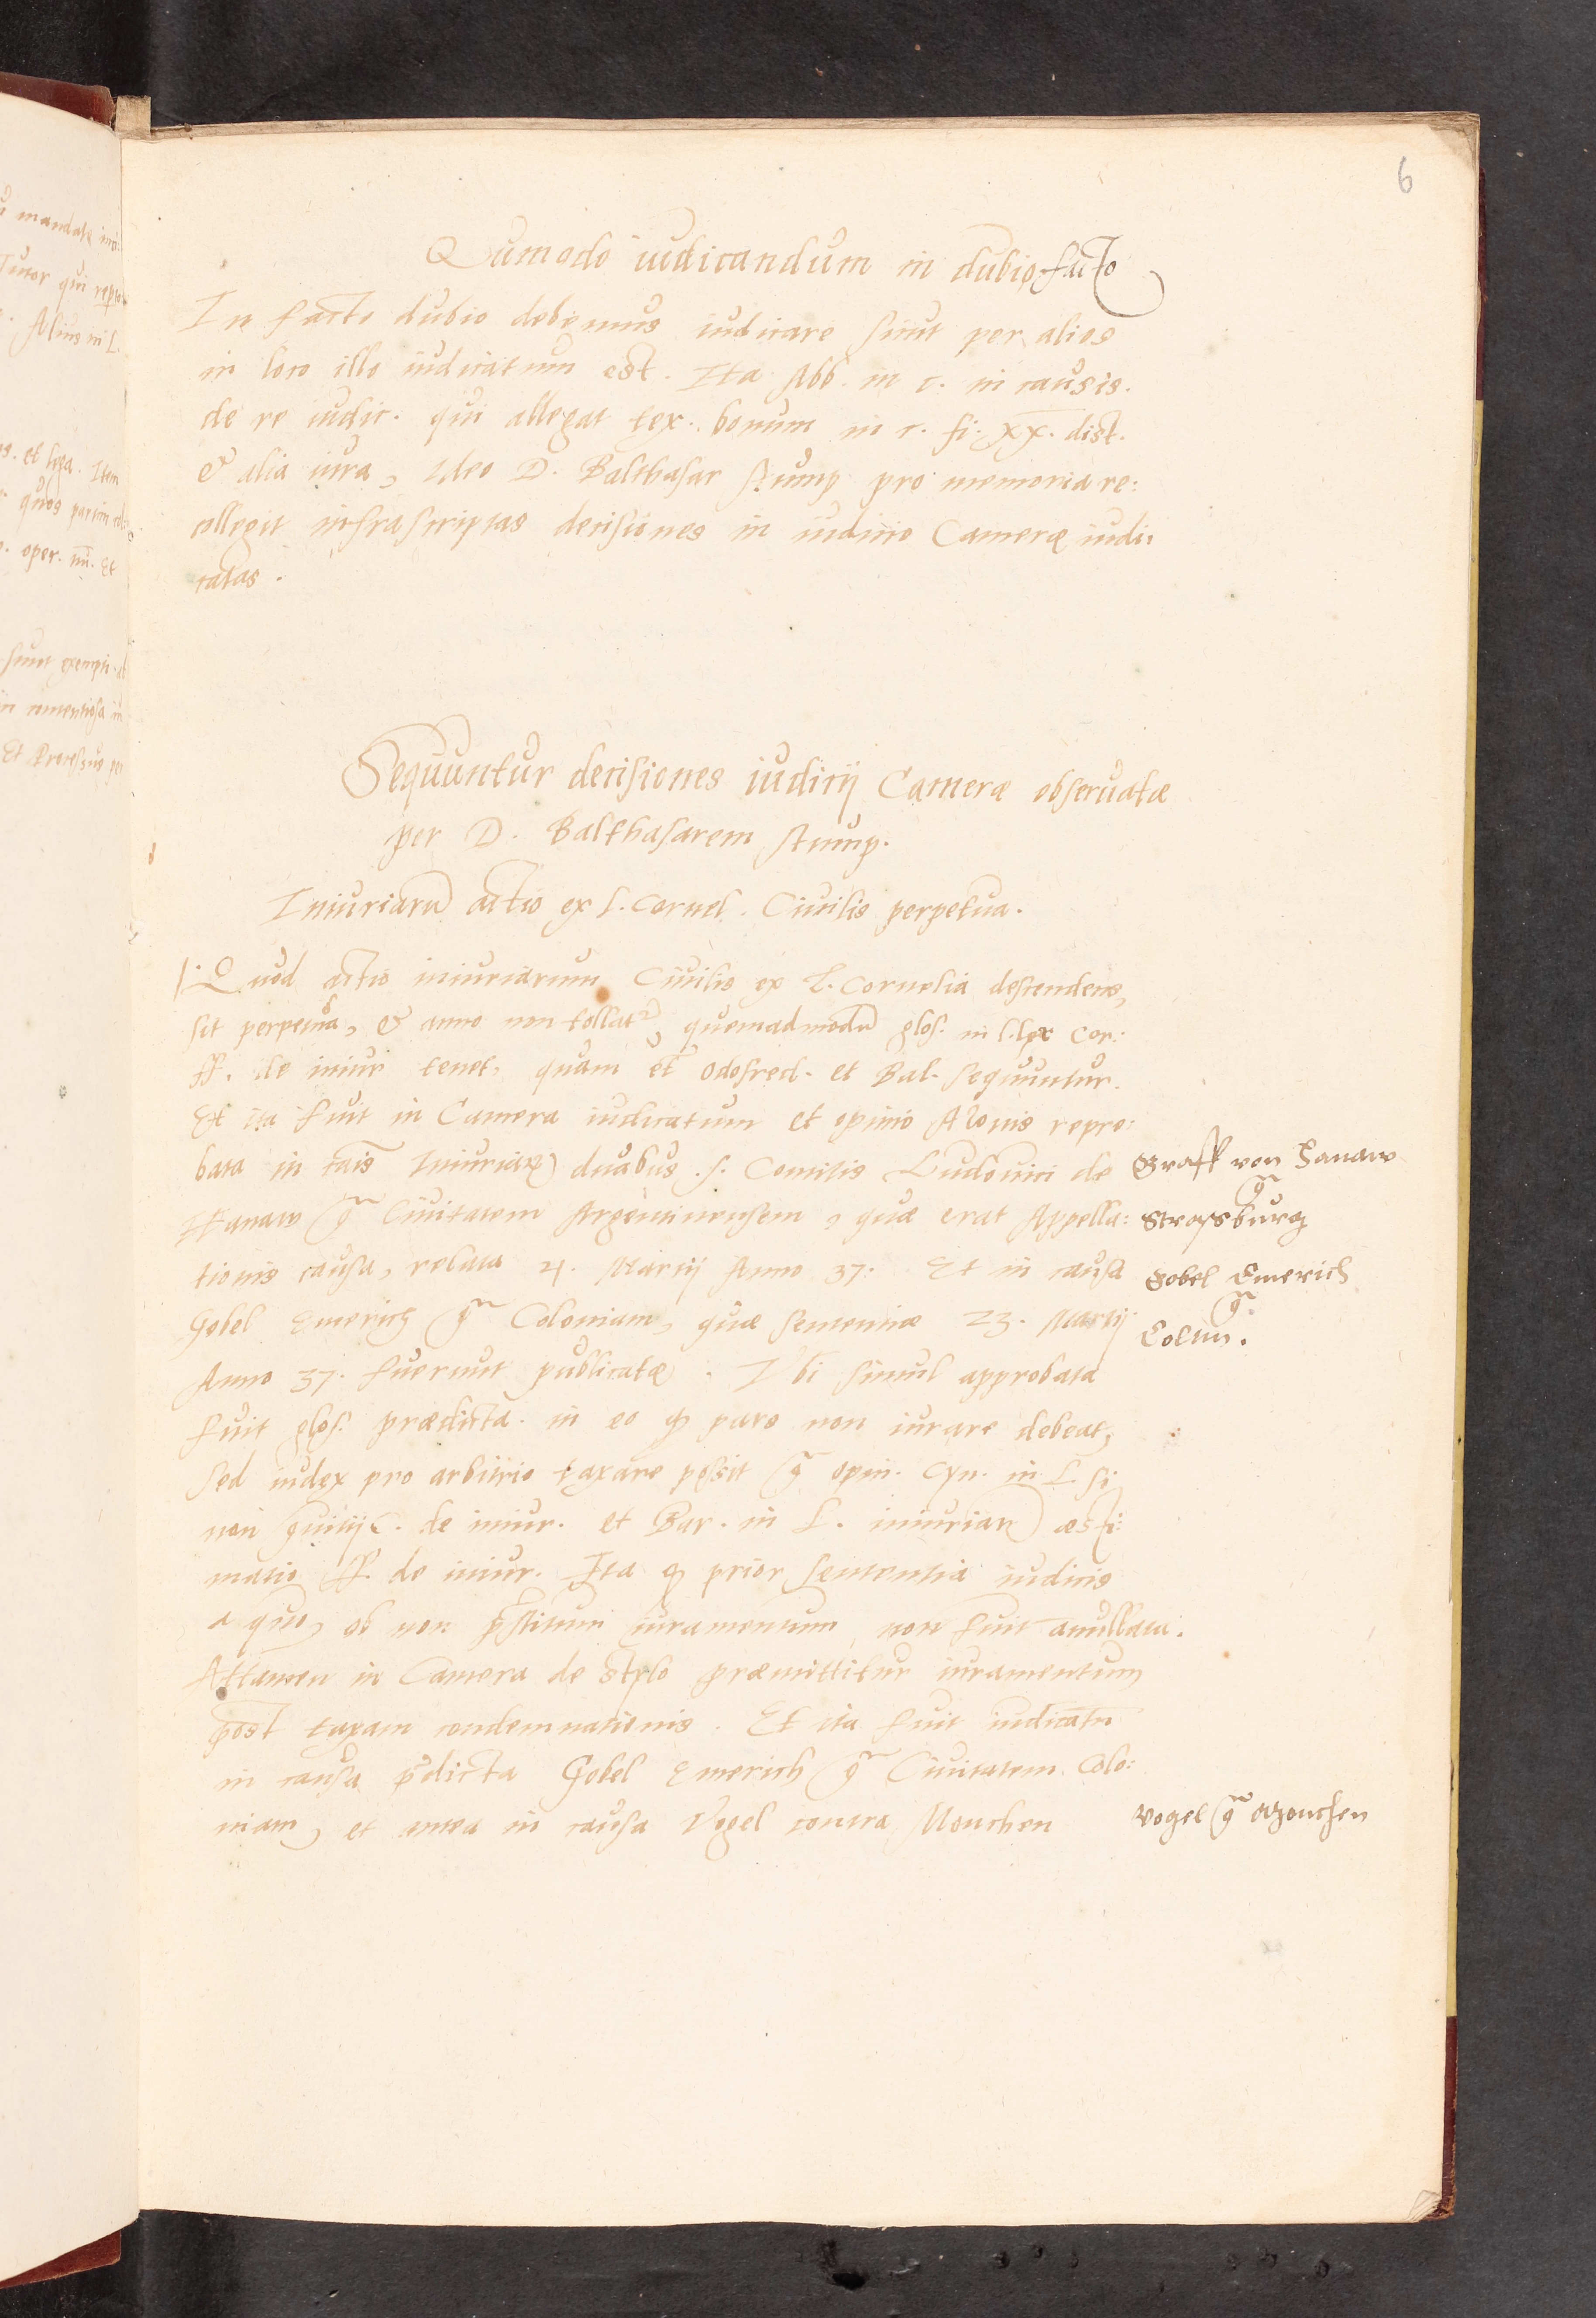 6
Qumodo iudicandum in dubio facto
In facto dubio debemus iudicare sicut per alios
in loco illo iudicatum est. Ita Abb. in c. in causis.
de re iudic. qui allegat tex. bonum in c. fi. xx. dist.
& alia iura, Ideo D. Balthasar Stump pro memoria re:
collegit infrascriptas decisiones in iudicio Cameræ iudi:
catas.
Sequuntur decisiones iudicij Cameræ obseruatæ
per D. Balthasarem Stump.
Iniuriarū actio ex l. Cornel. Ciuilis perpetua.
1. Quod actio iniuriarum Ciuilis ex L. Cornelia descendens,
sit perpetua, & anno non tollatr, quemadmodū glos. in l. lex Cor:
ff. de iniur tenet, quam et Odofred. et Bal. sequuntur.
Et ita fuit in Camera iudicatum et opinio Azonis repro:
bata in cais Iniuriaꝝ duabus .s. Comitis Ludouici de
Hanaw ꝯ Ciuitatem Argentinensem, quæ erat Appella:
tionis causa, relata 21. Martij Anno 37. Et in causa
Gobel Emerich ꝯ Coloniam, quæ sententiæ 23. Martij
Anno 37. fuerunt publicatæ. Vbi simul approbata
fuit glos. prædicta. in eo ꝙ pars non iurare debeat,
sed iudex pro arbitrio taxare possit ꝯ opin. Cyn. in L. si
non conuitij C. de iniur. et Bar. in L. iniuriaꝝ æsti:
matio ff. de iniur. Ita ꝙ prior sententia iudicis
a quo, ob non p̄stitum iuramentum non fuit anullata.
Attamen in Camera de stylo præmittitur iuramentum
post taxam condemnationis. Et ita fuit iudicatū
in causa p̄dicta Gobel Emerich ꝯ Ciuitatem Colo:
niam, et antea in causa Vogel contra Monchen
Graff von Hanaw
ꝯ
Strassburg
Gobel Emerich
ꝯ
Colln.
Vogel ꝯ Monchen